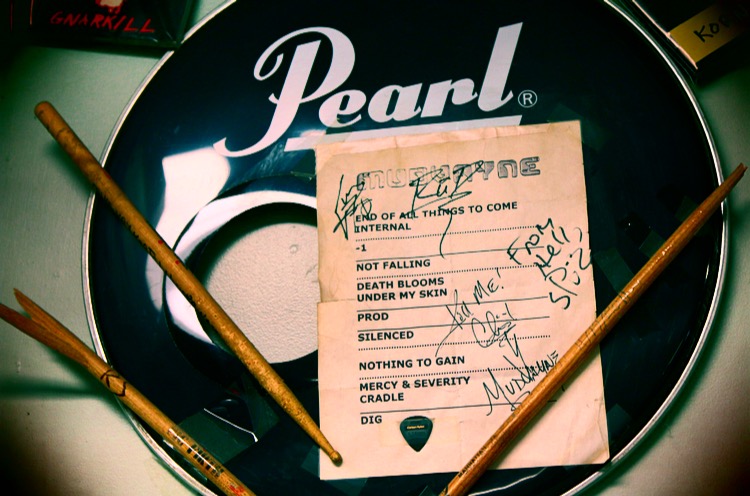 GNARKILL
Pearl®
MUDVAYNE
END OF ALL THINGS TO COME
INTERNAL
-1
NOT FALLING
DEATH BLOOMS
UNDER MY SKIN
PROD
SILENCED
NOTHING TO GAIN
MERCY & SEVERITY
CRADLE
DIG
FROM
Hell,
Kill Me!
MUDVAYNE